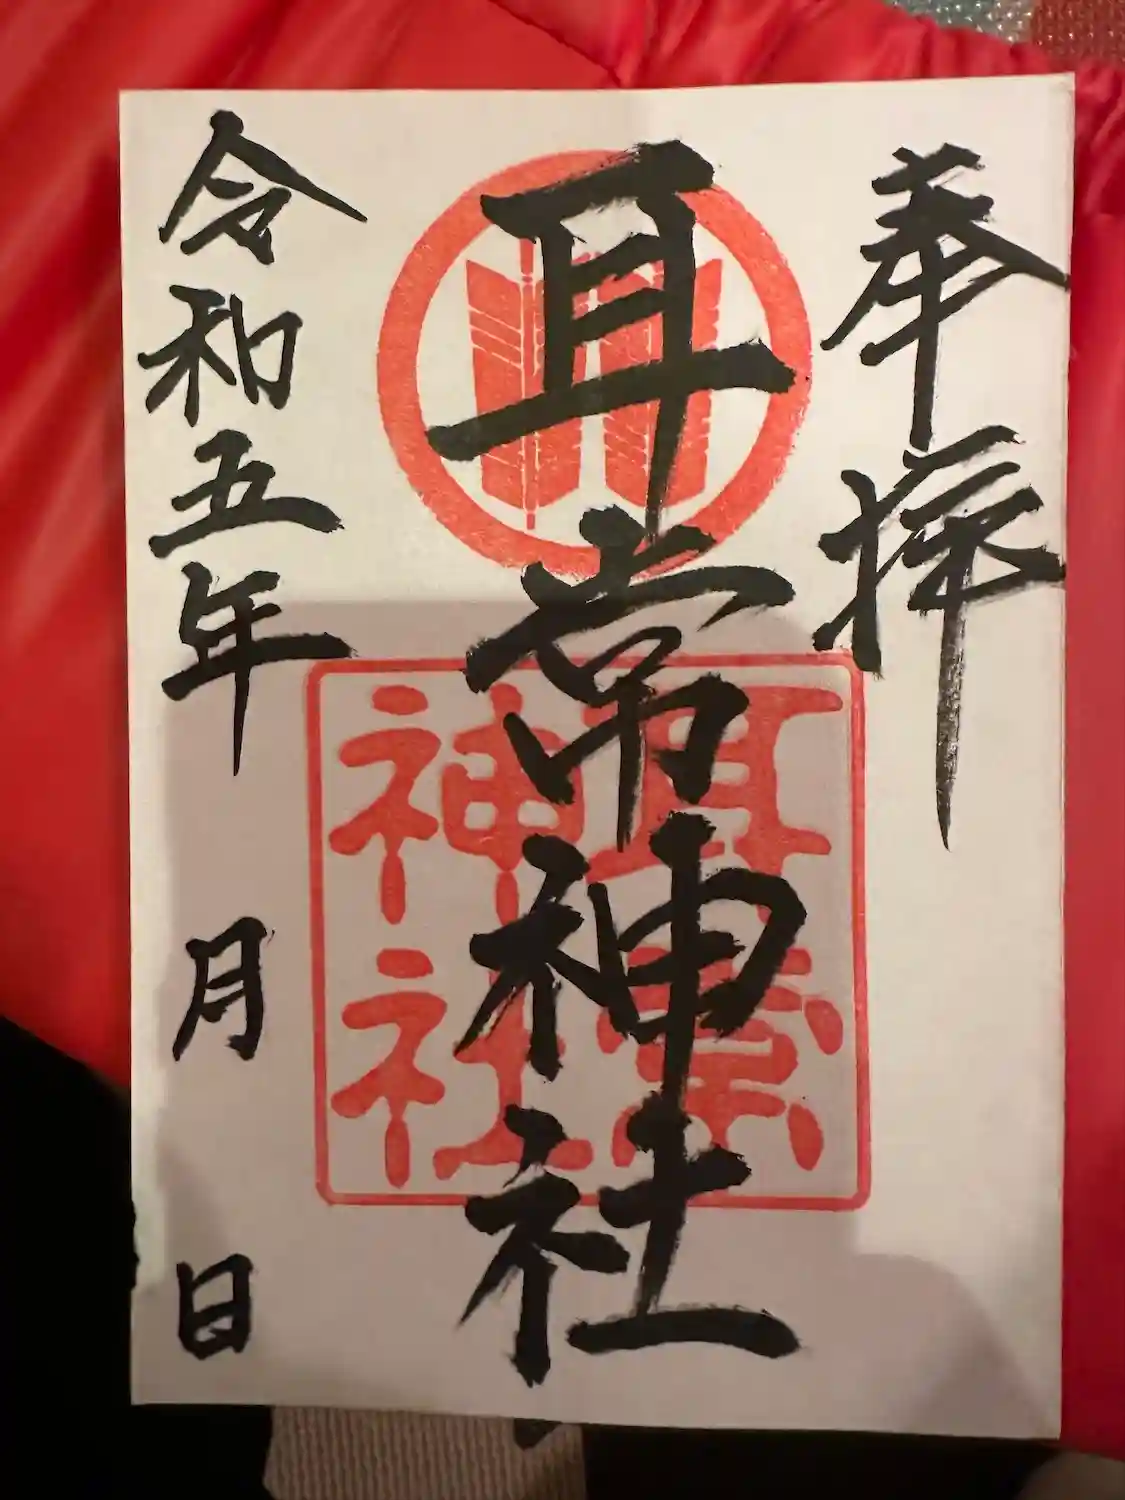 奉拝
耳常神社
令和五年 月 日
耳常
神社